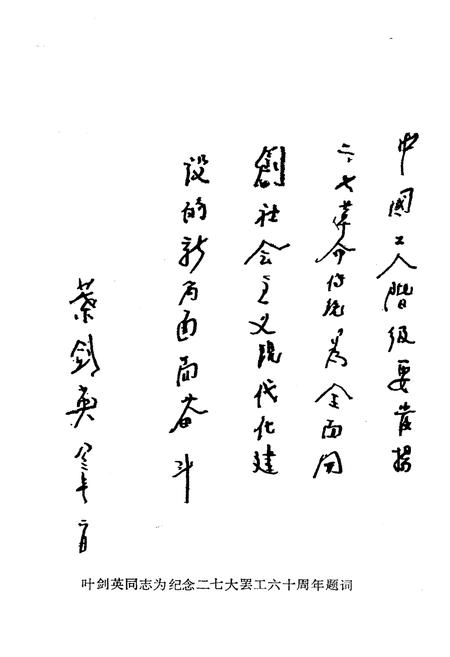 中國工人階级要发揚
二·七革命传统为全面開
創社会主义现代化建
设的新局面而奋斗
葉剑英 八三年二月
叶剑英同志为纪念二七大罢工六十周年题词